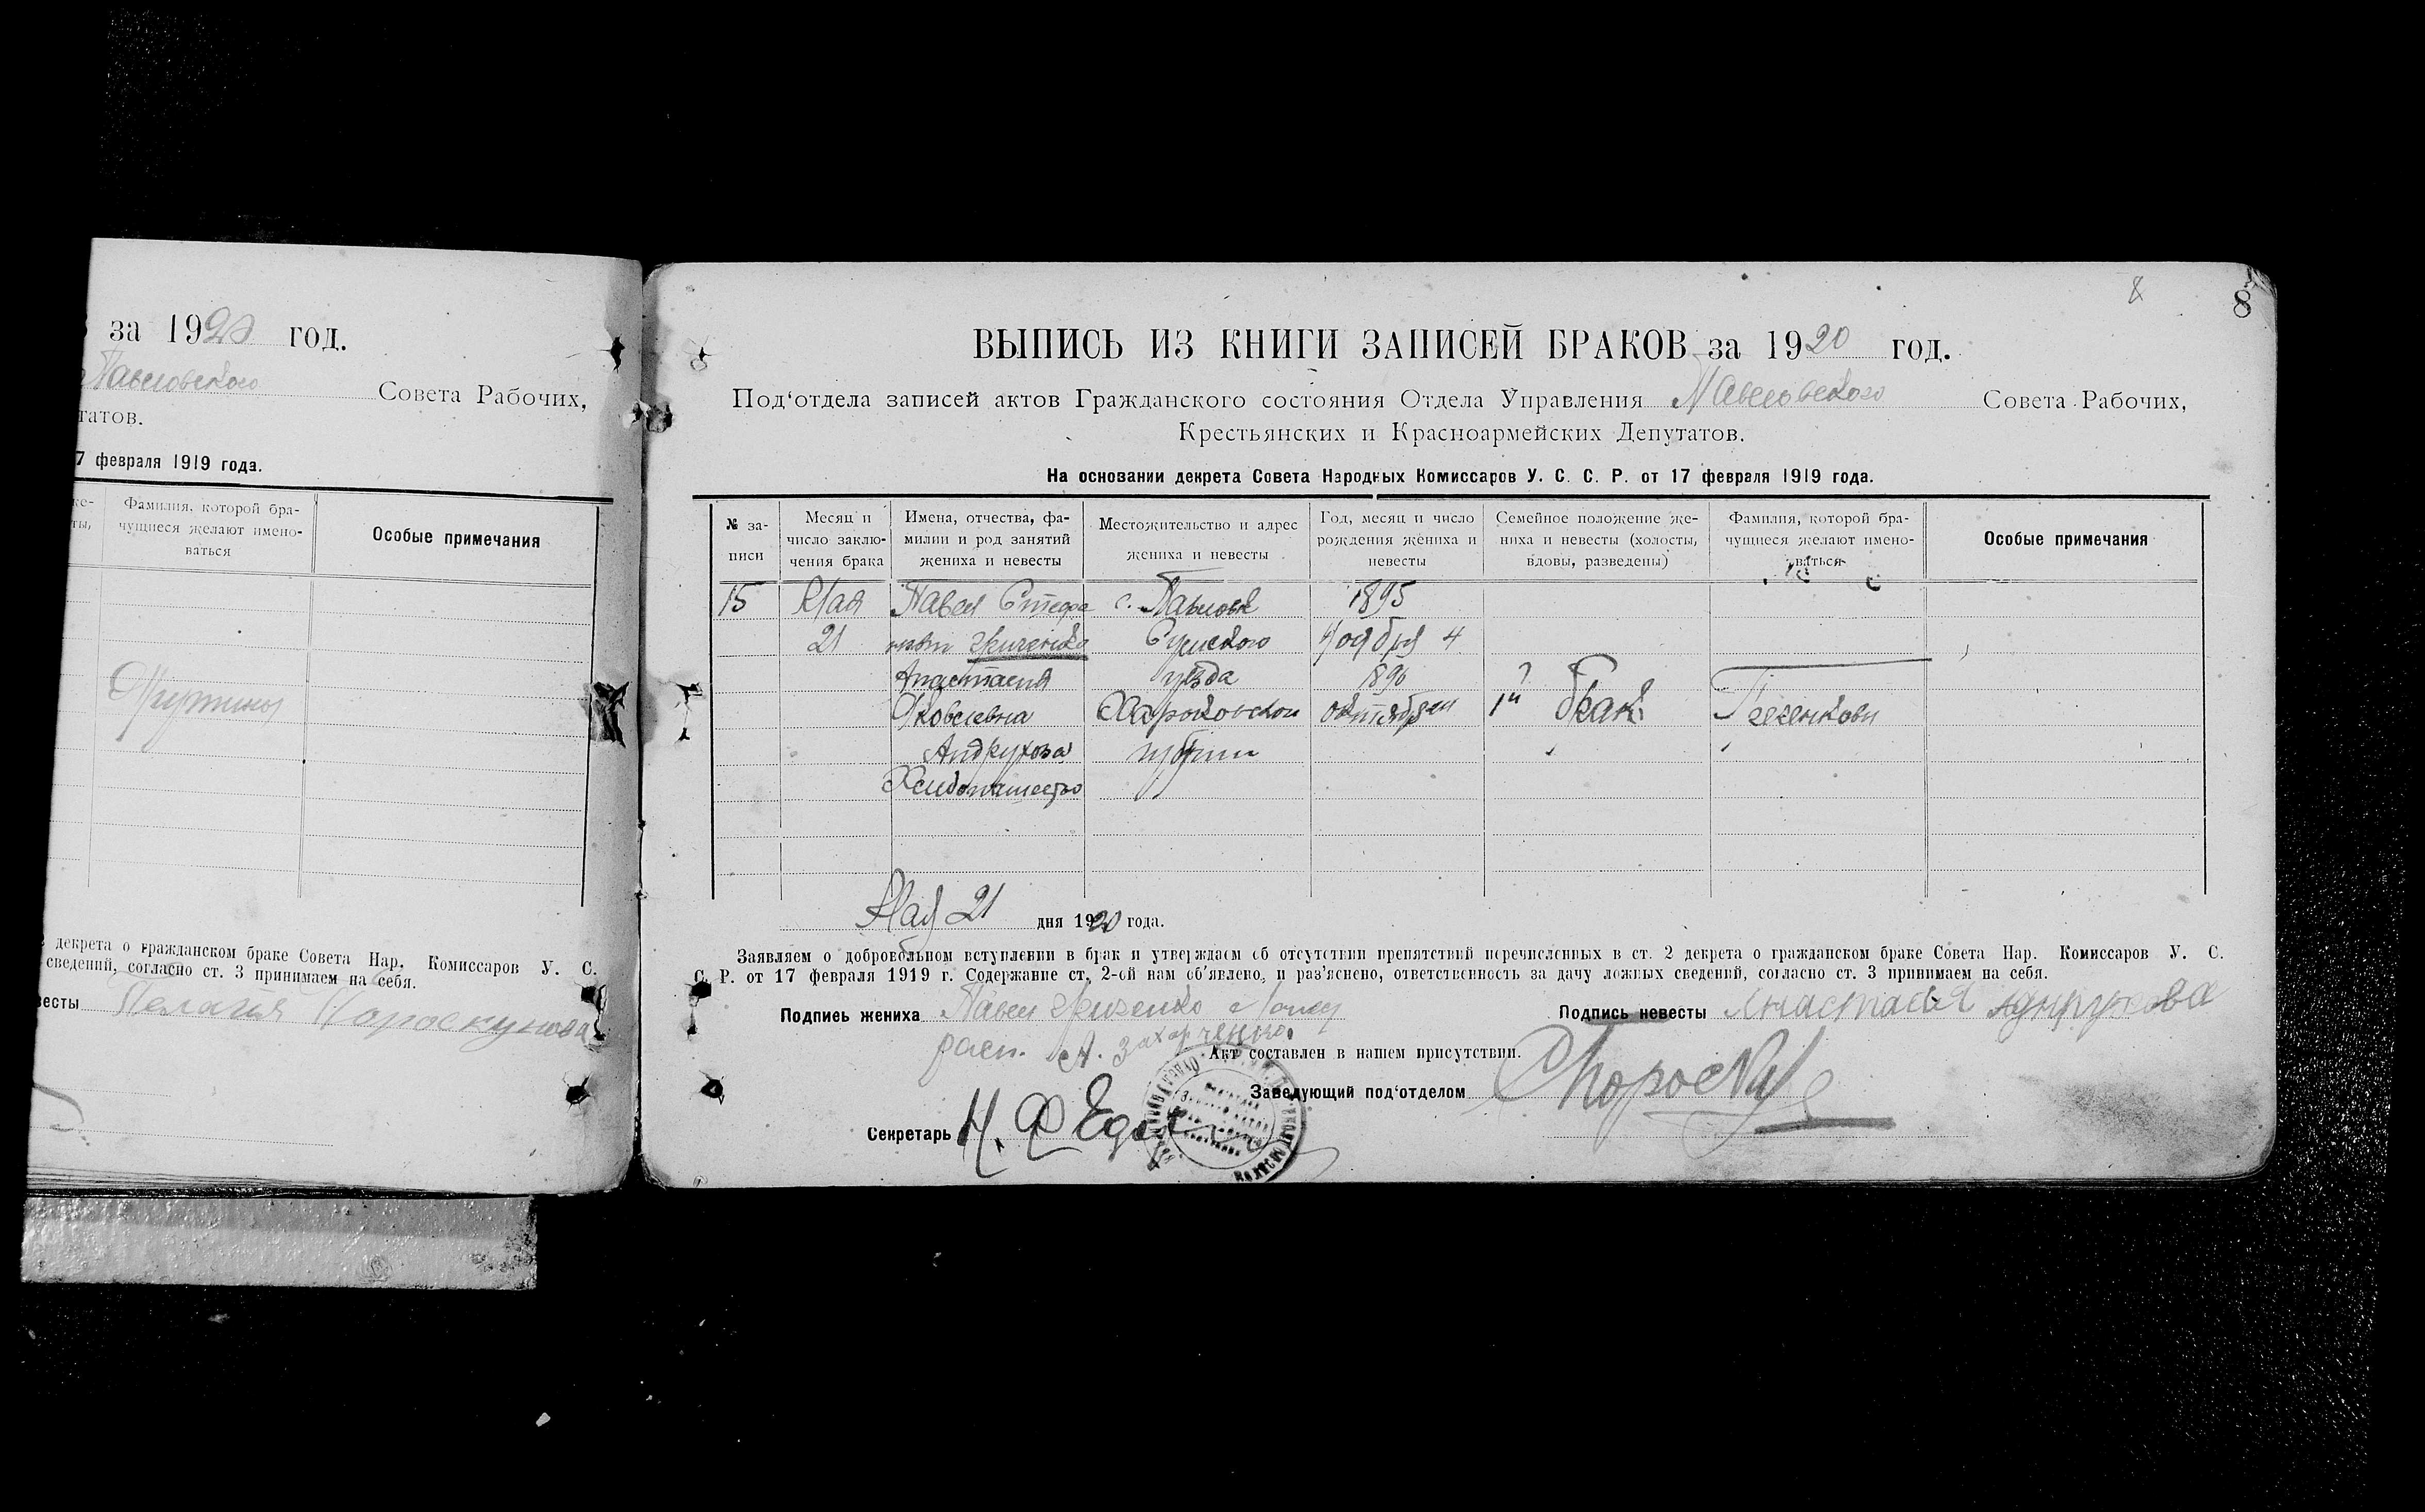 за 1920 год.
Павловского Совета Рабочих,
татов.
7 февраля 1919 года.
Фамилия, которой бра-
чущиеся желают имено-
ваться
Особые примечания
декрета о гражданском браке Совета Нар. Комиссаров У. С.
сведений, согласно ст. 3 принимаем на себя.
весты Пелагия Пороскунова
8
8
ВЫПИСЬ ИЗ КНИГИ ЗАПИСЕЙ БРАКОВ за 1920 год.
Под‘отдела записей актов Гражданского состояния Отдела Управления Павловского Совета Рабочих,
Крестьянских и Красноармейских Депутатов.
На основании декрета Совета Народных Комиссаров У. С. С. Р. от 17 февраля 1919 года.
№ за-
писи
Месяц и
число заклю-
чения брака
Имена, отчества, фа-
милии и род занятий
жениха и невесты
Местожительство и адрес
жениха и невесты
Год, месяц и число
рождения жениха и
невесты
Семейное положение же-
ниха и невесты (холосты,
вдовы, разведены)
Фамилия, которой бра-
чущиеся желают имено-
ваться
Особые примечания
15 Мая Павел Стефа с. Павловк 1895
21 Гриченко Сумского Ноября 4
Анастасия уезда 1890
Яковлевна Харьковской октября 1й брак
Андрухова губрнии
Хлебопашество
Мая 21 дня 1920 года.
Заявляем о добровольном вступлении в брак и утверждаем об отсутствии препятствий перечисленных в ст. 2 декрета о гражданском браке Совета Нар. Комиссаров У. С.
С. Р. от 17 февраля 1919 г. Содержание ст. 2-ой нам об‘явлено, и раз‘яснено, ответственность за дачу ложных сведений, согласно ст. 3 принимаем на себя.
Подпись жениха Павел
расп. А. Захарченко
Подпись невесты Анастасия Андрухова
Акт составлен в нашем присутствии.
Заведующий под‘отделом
Секретарь Н. Ф